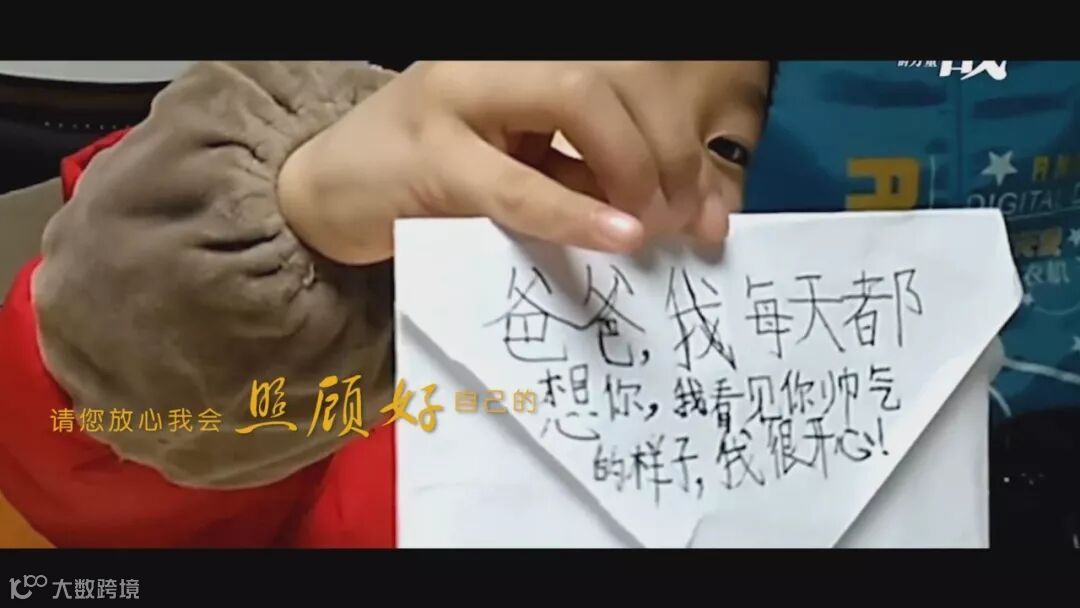 战
的力量
R
DIGITAL
爸爸,我每天都
想你,我看见你帅气
的样子,我很开心!
请您放心我会照顾好自己的
大数跨境